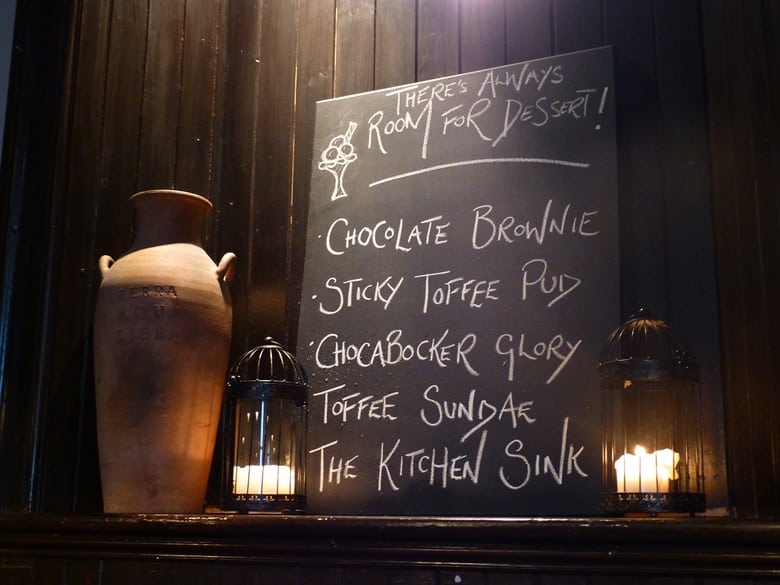 THERE'S ALWAYS
ROOM FOR DESSERT!
· CHOCOLATE BROWNIE
· STICKY TOFFEE PUD
· CHOCABOCKER GLORY
TOFFEE SUNDAE
THE KITCHEN SINK
TERRA
AQUA